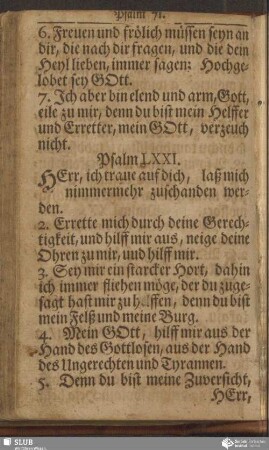 Psalm 71.
6. Freuen und frölich müssen seyn an
dir, die nach dir fragen, und die dein
Heyl lieben, immer sagen: Hochge-
lobet sey GOtt.
7. Ich aber bin elend und arm, Gott,
eile zu mir, denn du bist mein Helffer
und Erretter, mein GOtt, verzeuch
nicht.
Psalm LXXI.
HErr, ich traue auf dich, laß mich
nimmermehr zuschanden wer-
den.
2. Errette mich durch deine Gerech-
tigkeit, und hilff mir aus, neige deine
Ohren zu mir, und hilff mir.
3. Sey mir ein starcker Hort, dahin
ich immer fliehen möge, der du zuge-
sagt hast mir zu helffen, denn du bist
mein Felß und meine Burg.
4. Mein GOtt, hilff mir aus der
Hand des Gottlosen, aus der Hand
des Ungerechten und Tyrannen.
5. Denn du bist meine Zuversicht,
HErr,
SLUB